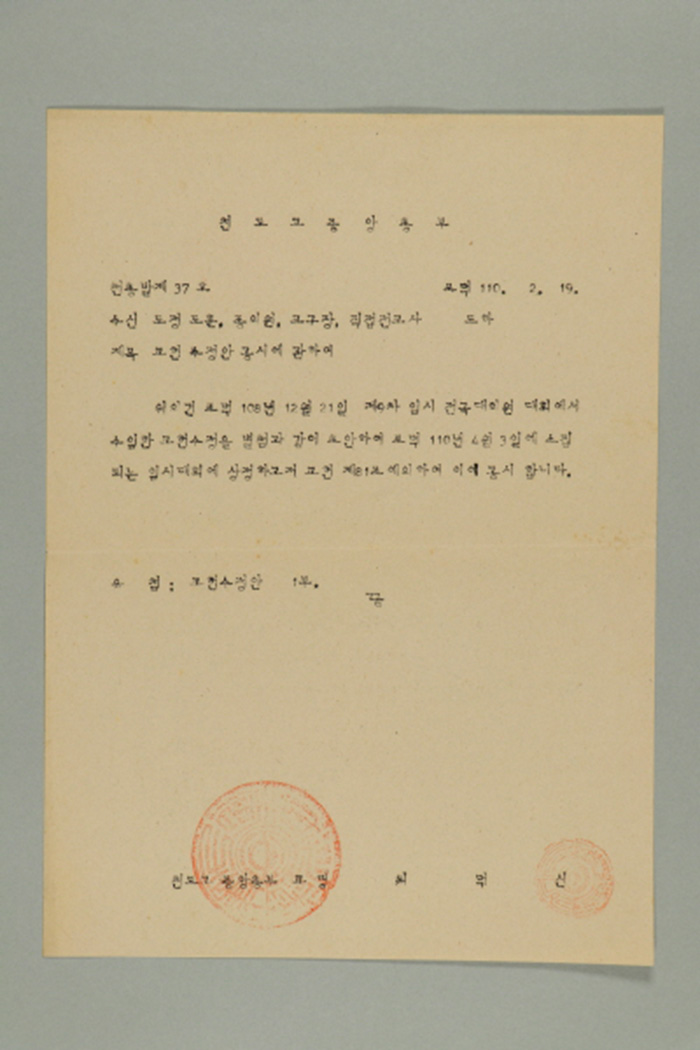 천 도 교 중 앙 총 부
천총발제 37 호 포덕 110. 2. 19.
수신 도정 도훈, 종의원, 교구장, 직접전교사
제목 교헌 수정안 공시에 관하여
위의건 포덕 108년 12월 21일 제9차 임시 전국대의원 대회에서
수임한 교헌수정을 별첨과 같이 초안하여 포덕 110년 4월 3일에 소집
되는 임시대회에 상정하고저 교헌 제81조에의하여 이에 공시 합니다.
유 첨 : 교헌수정안 1부.
끝
천도교 중앙총부 교 령 최 덕 신